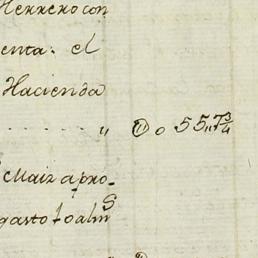 Herrero con
enta: el
Hacienda
" ① o 55,,7¾
Maiz apro-
gasto to alms